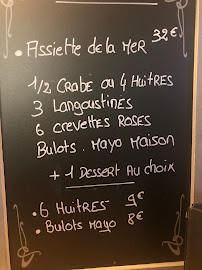 • Assiette de la Mer 32€
1/2 Crabe ou 4 Huitres
3 Langoustines
6 crevettes Roses
Bulots . Mayo Maison
+ 1 Dessert Au choix
• 6 Huitres 9€
• Bulots Mayo 8€